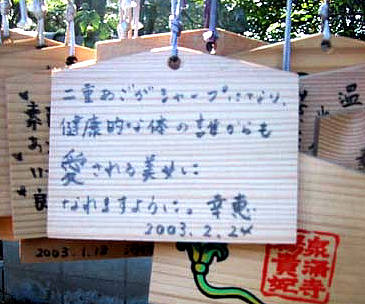 二重あごがシャープになり、
健康的な体の誰からも
愛される美女に
なれますように。幸恵
2003.2.24
2003.1.18
泉涌寺
楊貴妃
温